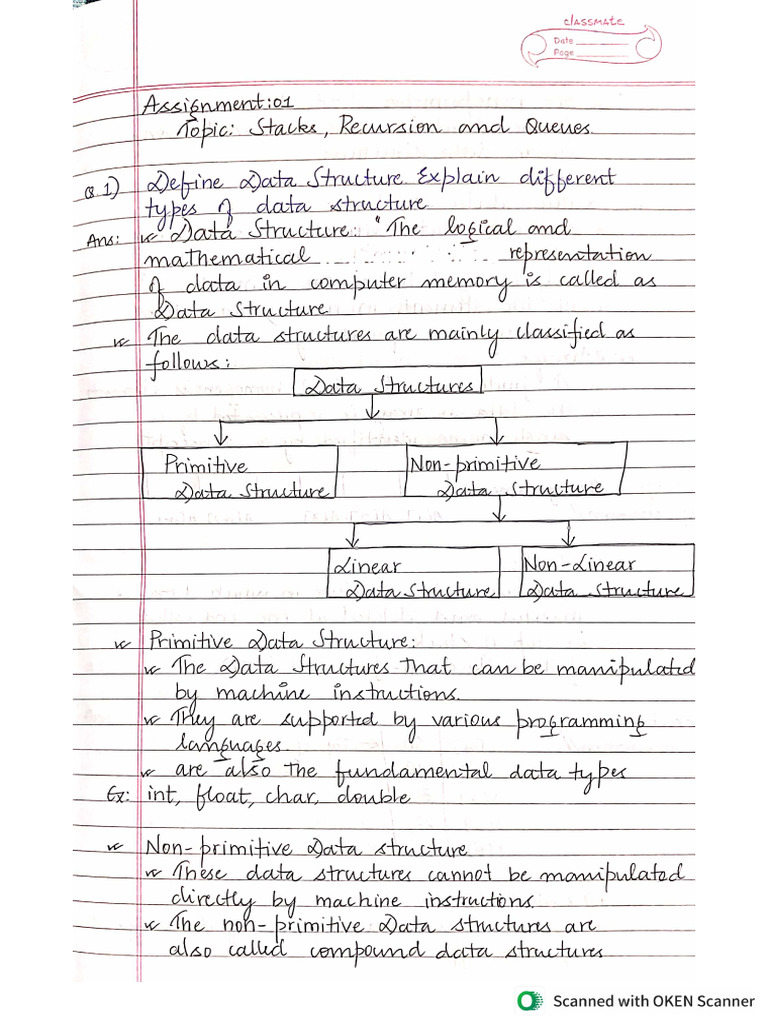 classmate
Date
Page
Assignment:01
Topic: Stacks, Recursion and Queues.
Q 1) Define Data Structure Explain different
types of data structure
Ans: Data Structure: "The logical and
mathematical representation
of data in computer memory is called as
Data Structure
The data structures are mainly classified as
follows:
Data Structures
Primitive Data Structure
Non-primitive Data Structure
Linear Data Structure
Non-Linear Data Structure
Primitive Data Structure:
The Data Structures that can be manipulated
by machine instructions.
They are supported by various programming
languages.
are also the fundamental data types
Ex: int, float, char, double
Non-primitive Data structure
These data structures cannot be manipulated
directly by machine instructions
The non-primitive Data structures are
also called compound data structures
Scanned with OKEN Scanner